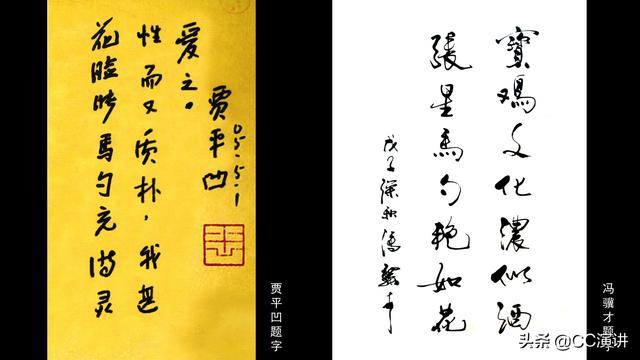 花脸的馬勺充满灵
性而又质朴，我甚
爱之。
贾平凹
05.5.1
贾平凹题字
寶鸡文化濃似酒
張星馬勺艳如花
戊子深秋馮驥才
冯骥才题字
头条 @CC演讲